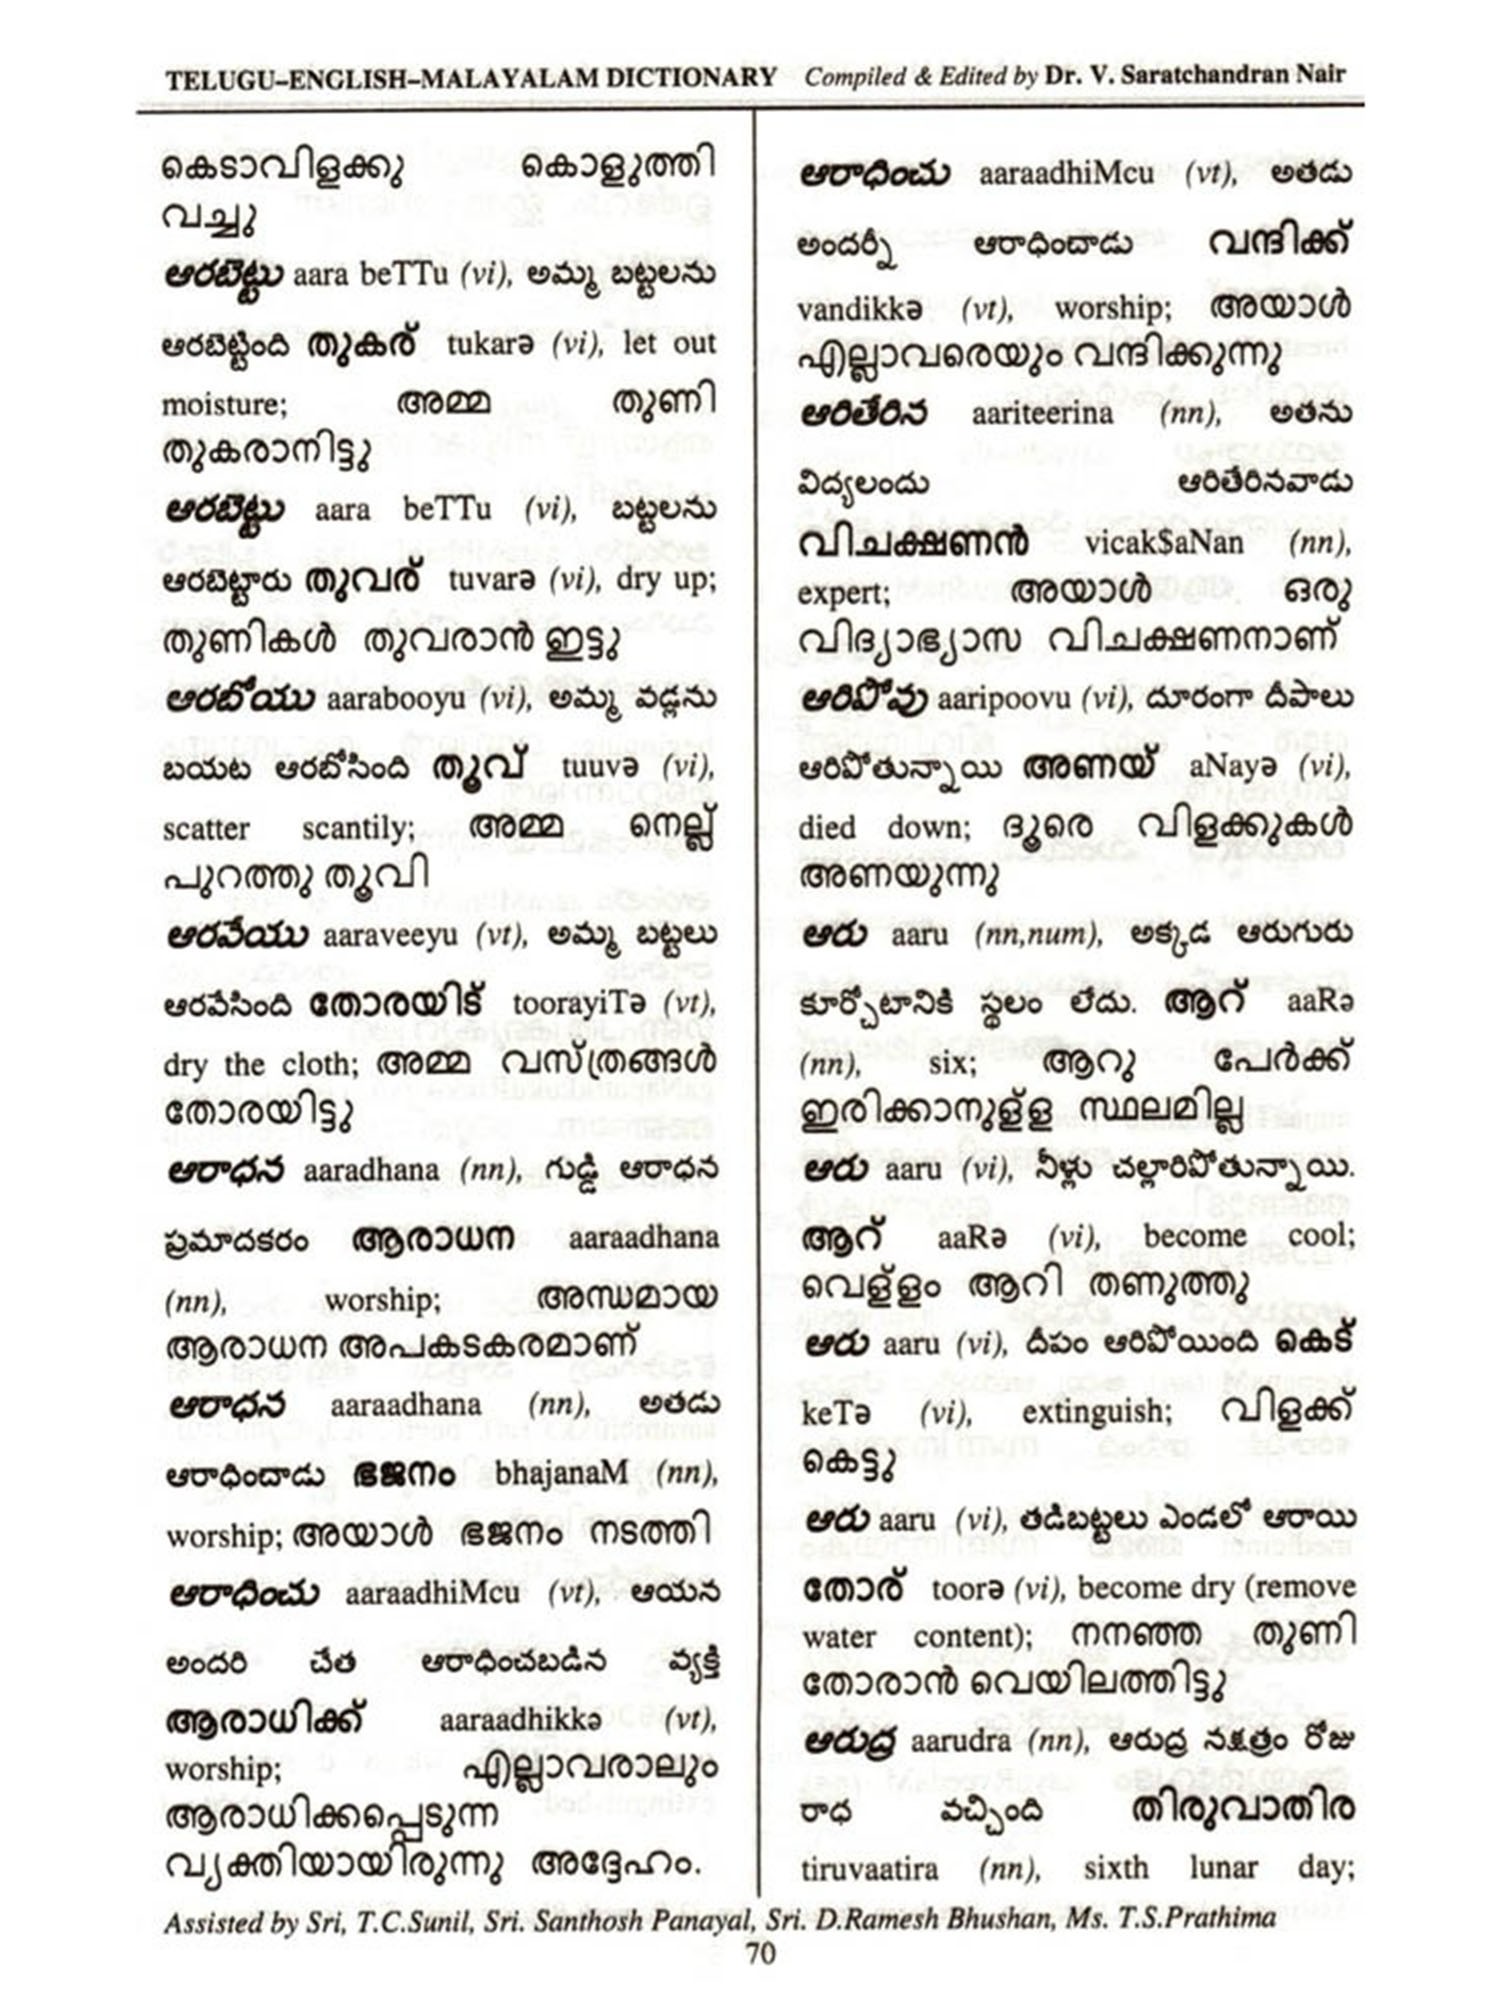 TELUGU–ENGLISH–MALAYALAM DICTIONARY Compiled & Edited by Dr. V. Saratchandran Nair
കെടാവിളക്കു കൊളുത്തി
വച്ചു
ఆరబెట్టు aara beTTu (vi), అమ్మ బట్టలను
ఆరబెట్టింది തുകര് tukarə (vi), let out
moisture; അമ്മ തുണി
തുകരാനിട്ടു
ఆరబెట్టు aara beTTu (vi), బట్టలను
ఆరబెట్టారు തുവര് tuvarə (vi), dry up;
തുണികൾ തുവരാൻ ഇട്ടു
ఆరబోయు aarabooyu (vi), అమ్మ వడ్లను
బయట ఆరబోసింది തൂവ് tuuvə (vi),
scatter scantily; അമ്മ നെല്ല്
പുറത്തു തൂവി
ఆరవేయు aaraveeyu (vt), అమ్మ బట్టలు
ఆరవేసింది തോരയിട് toorayiTə (vt),
dry the cloth; അമ്മ വസ്ത്രങ്ങൾ
തോരയിട്ടു
ఆరాధన aaradhana (nn), గుడ్డి ఆరాధన
ప్రమాదకరం ആരാധന aaraadhana
(nn), worship; അന്ധമായ
ആരാധന അപകടകരമാണ്
ఆరాధన aaraadhana (nn), అతడు
ఆరాధించాడు ഭജനം bhajanaM (nn),
worship; അയാൾ ഭജനം നടത്തി
ఆరాధించు aaraadhiMcu (vt), ఆయన
అందరి చేత ఆరాధించబడిన వ్యక్తి
ആരാധിക്ക് aaraadhikkə (vt),
worship; എല്ലാവരാലും
ആരാധിക്കപ്പെടുന്ന
വ്യക്തിയായിരുന്നു അദ്ദേഹം.
ఆరాధించు aaraadhiMcu (vt), అతడు
అందర్నీ ఆరాధించాడు വന്ദിക്ക്
vandikkə (vt), worship; അയാൾ
എല്ലാവരെയും വന്ദിക്കുന്നു
ఆరితేరిన aariteerina (nn), అతను
విద్యలందు ఆరితేరినవాడు
വിചക്ഷണൻ vicak$aNan (nn),
expert; അയാൾ ഒരു
വിദ്യാഭ്യാസ വിചക്ഷണനാണ്
ఆరిపోవు aaripoovu (vi), దూరంగా దీపాలు
ఆరిపోతున్నాయి അണയ് aNayə (vi),
died down; ദൂരെ വിളക്കുകൾ
അണയുന്നു
ఆరు aaru (nn,num), అక్కడ ఆరుగురు
కూర్చోటానికి స్థలం లేదు. ആറ് aaRə
(nn), six; ആറു പേർക്ക്
ഇരിക്കാനുള്ള സ്ഥലമില്ല
ఆరు aaru (vi), నీళ్లు చల్లారిపోతున్నాయి.
ആറ് aaRə (vi), become cool;
വെള്ളം ആറി തണുത്തു
ఆరు aaru (vi), దీపం ఆరిపోయింది കെട്
keTə (vi), extinguish; വിളക്ക്
കെട്ടു
ఆరు aaru (vi), తడిబట్టలు ఎండలో ఆరాయి
തോര് toorə (vi), become dry (remove
water content); നനഞ്ഞ തുണി
തോരാൻ വെയിലത്തിട്ടു
ఆరుద్ర aarudra (nn), ఆరుద్ర నక్షత్రం రోజు
రాధ వచ్చింది തിരുവാതിര
tiruvaatira (nn), sixth lunar day;
Assisted by Sri, T.C.Sunil, Sri. Santhosh Panayal, Sri. D.Ramesh Bhushan, Ms. T.S.Prathima
70